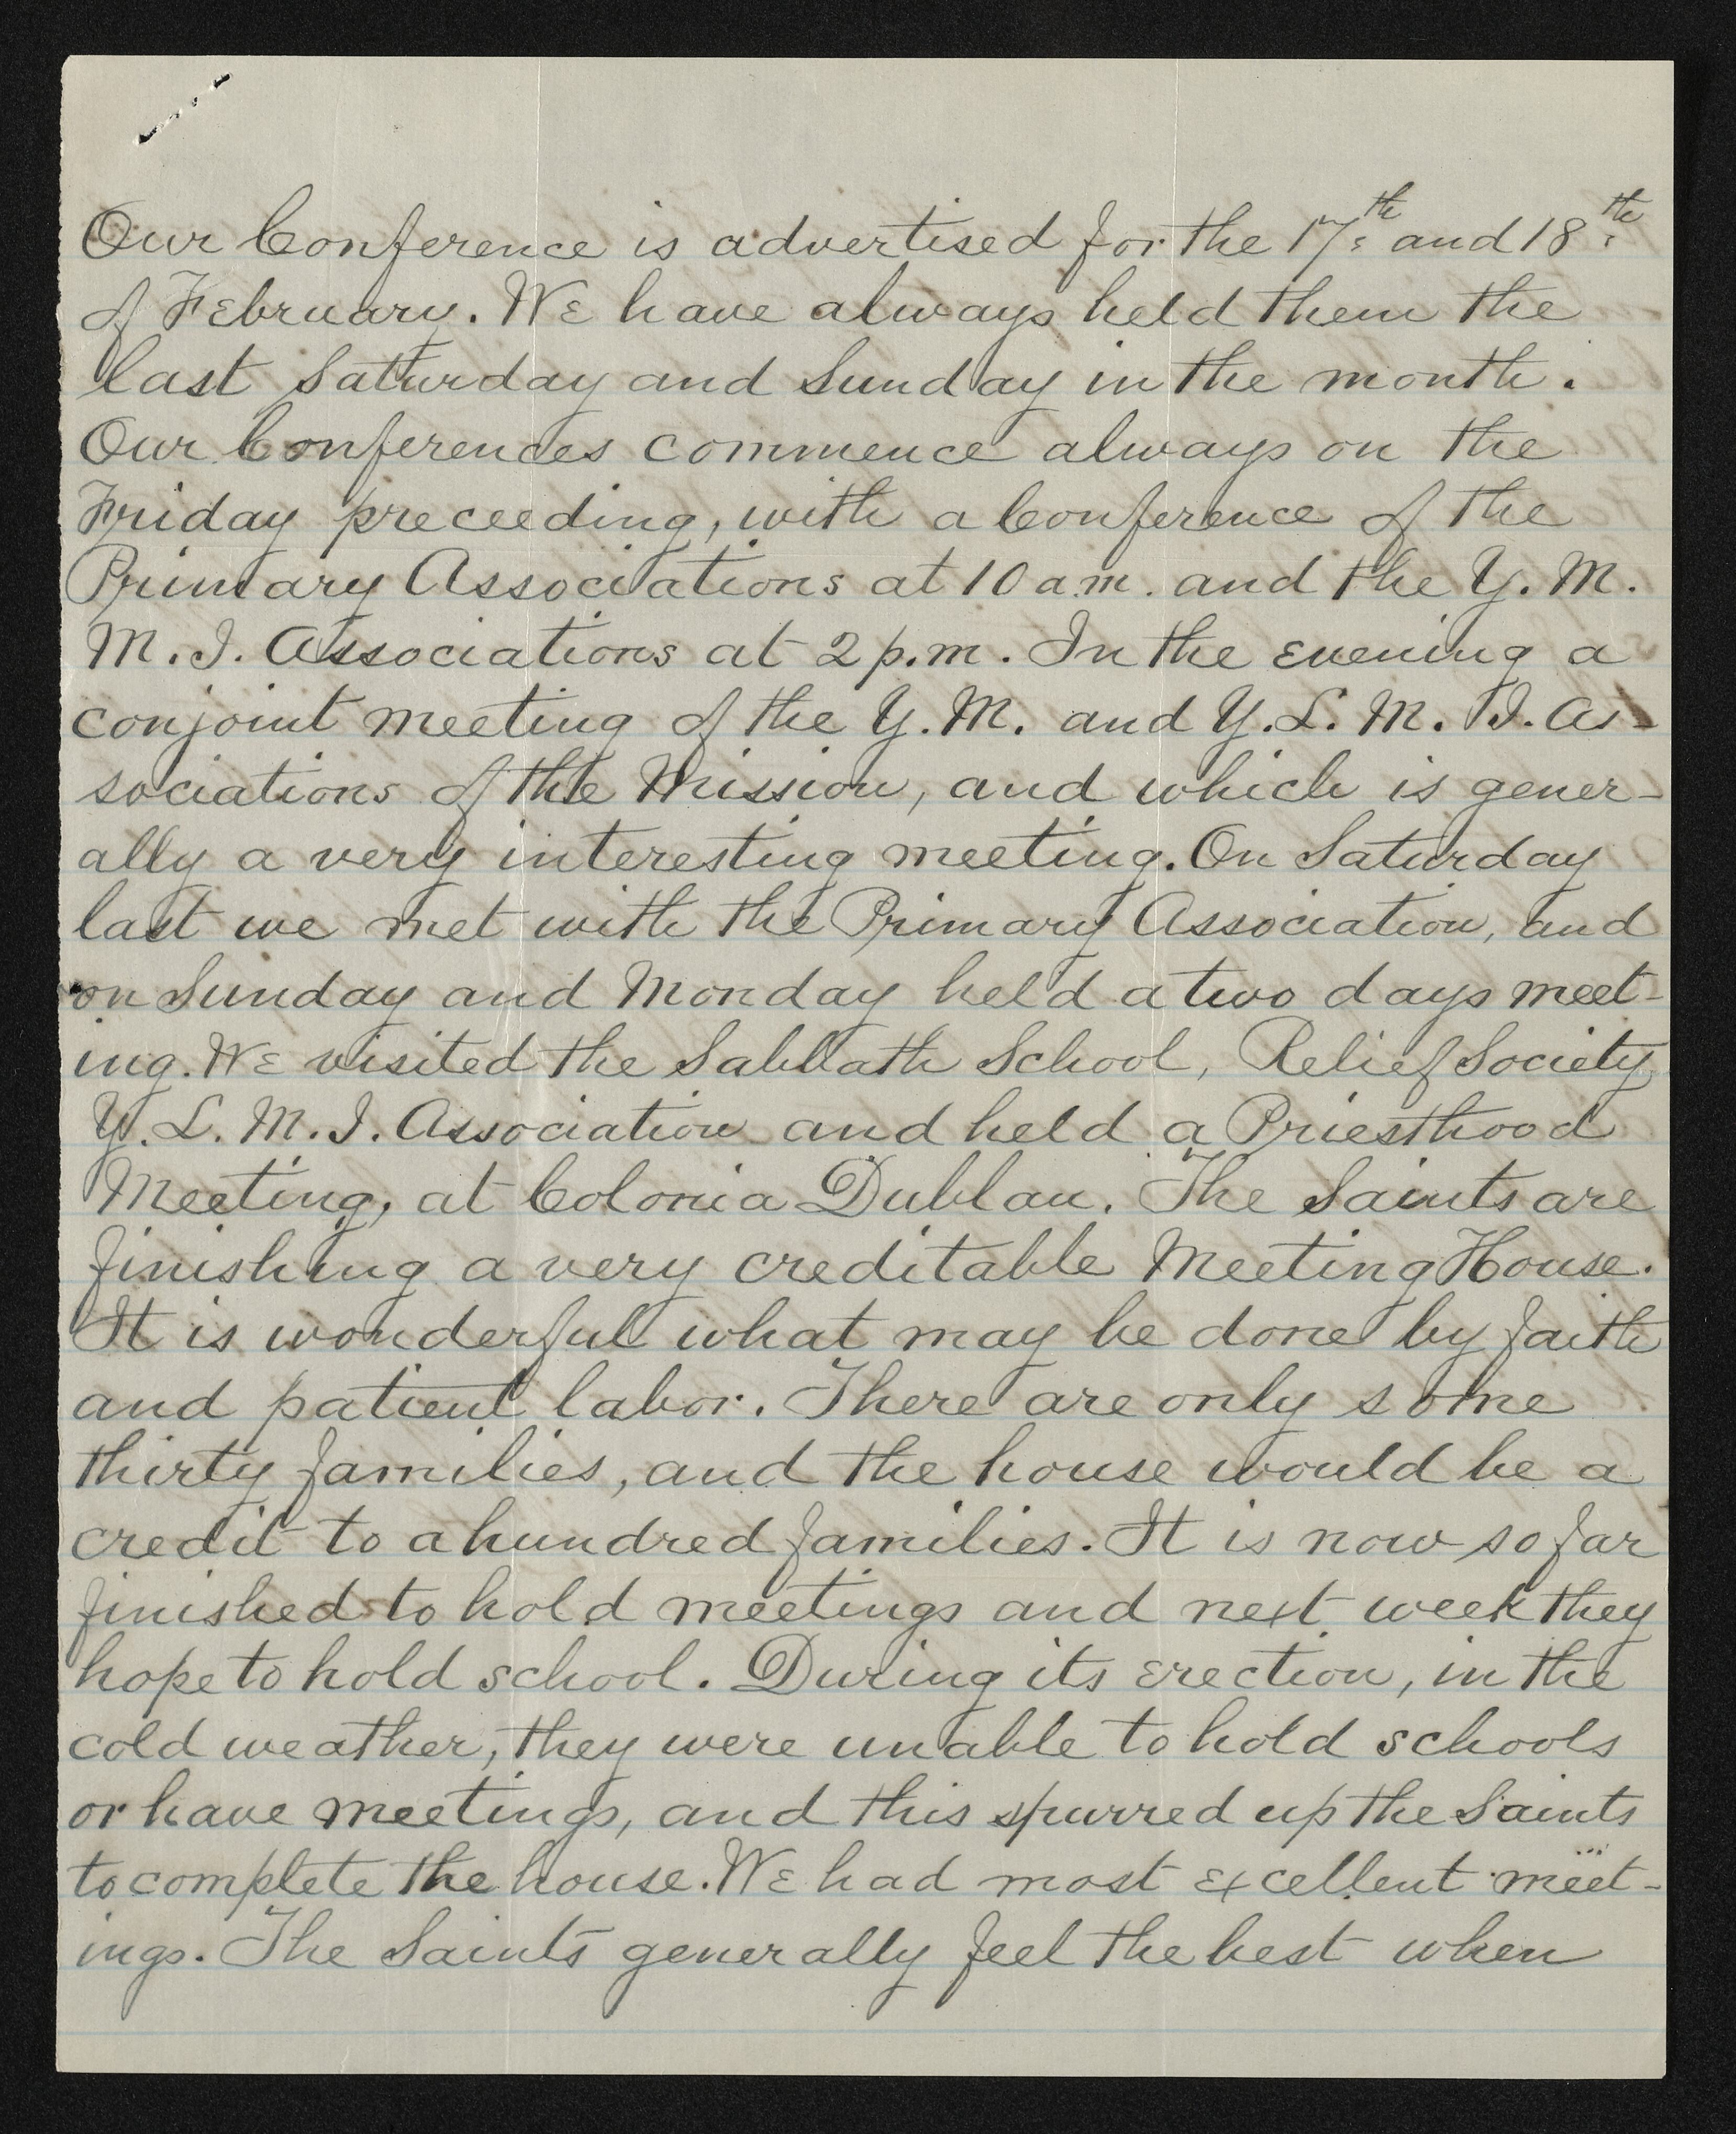 Our Conference is advertised for the 17th and 18th
of February. We have always held them the
last Satturday and Sunday in the month.
Our Conferences commence always on the
Friday preceeding, with a Conference of the
Primary Associations at 10 a.m. and the Y. M.
M. I. Associations at 2 p.m. In the evening a
conjoint meeting of the Y. M. and Y. L. M. I. As-
sociations of the Mission, and which is gener-
ally a very interesting meeting. On Saturday
last we met with the Primary Association, and
on Sunday and Monday held a two days meet-
ing. We visited the Sabbath School, Relief Society,
Y. L. M. I. Association and held a Priesthood
Meeting, at Colonia Dublan. The Saints are
finishing a very creditable Meeting House.
It is wonderful what may be done by faith
and patient labor. There are only some
thirty families, and the house would be a
credit to a hundred families. It is now so far
finished to hold meetings and next week they
hope to hold school. During its erection, in the
cold weather, they were unable to hold schools
or have meetings, and this spurred up the Saints
to complete the house. We had most excellent meet-
ings. The Saints generally feel the best when